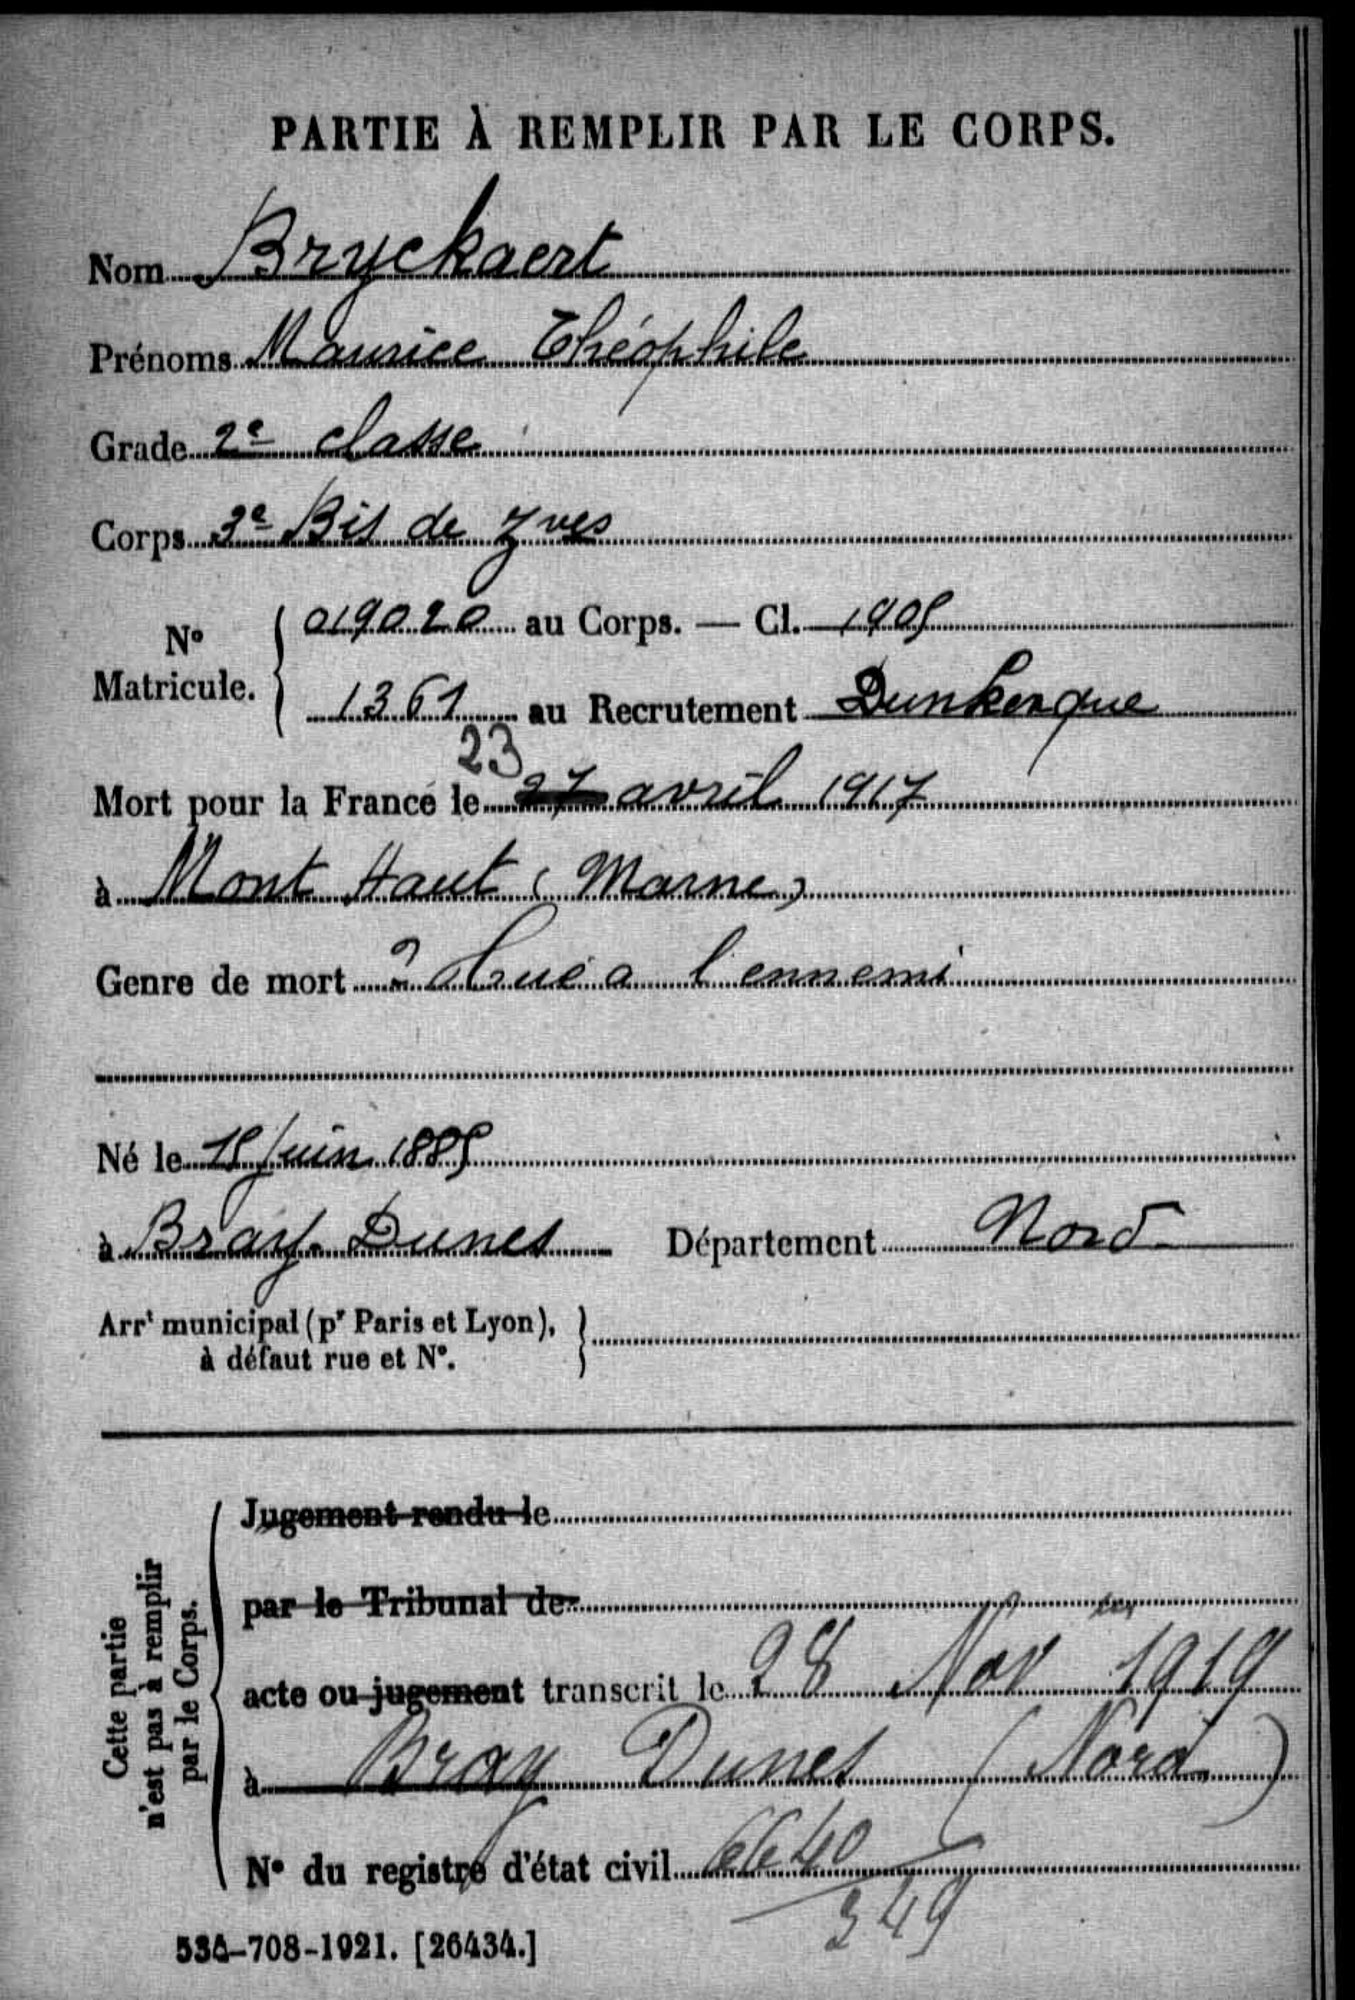 PARTIE À REMPLIR PAR LE CORPS.
Nom Bryckaert
Prénoms Maurice Théophile
Grade 2e classe
Corps 3e Bis de Zves
No Matricule. 019020 au Corps. — Cl. 1905
1361 au Recrutement Dunkerque
23
Mort pour la France le 27 avril 1917
à Mont Haut (Marne)
Genre de mort ? tué a l'ennemi
Né le 15 Juin 1885
à Bray-Dunes Département Nord
Arrt municipal (pr Paris et Lyon),
à défaut rue et No.
Cette partie
n'est pas à remplir
par le Corps.
Jugement rendu le
par le Tribunal de
acte ou jugement transcrit le 28 Nov 1919
à Bray Dunes (Nord)
No du registre d'état civil 6640
349
534-708-1921. [26434.]